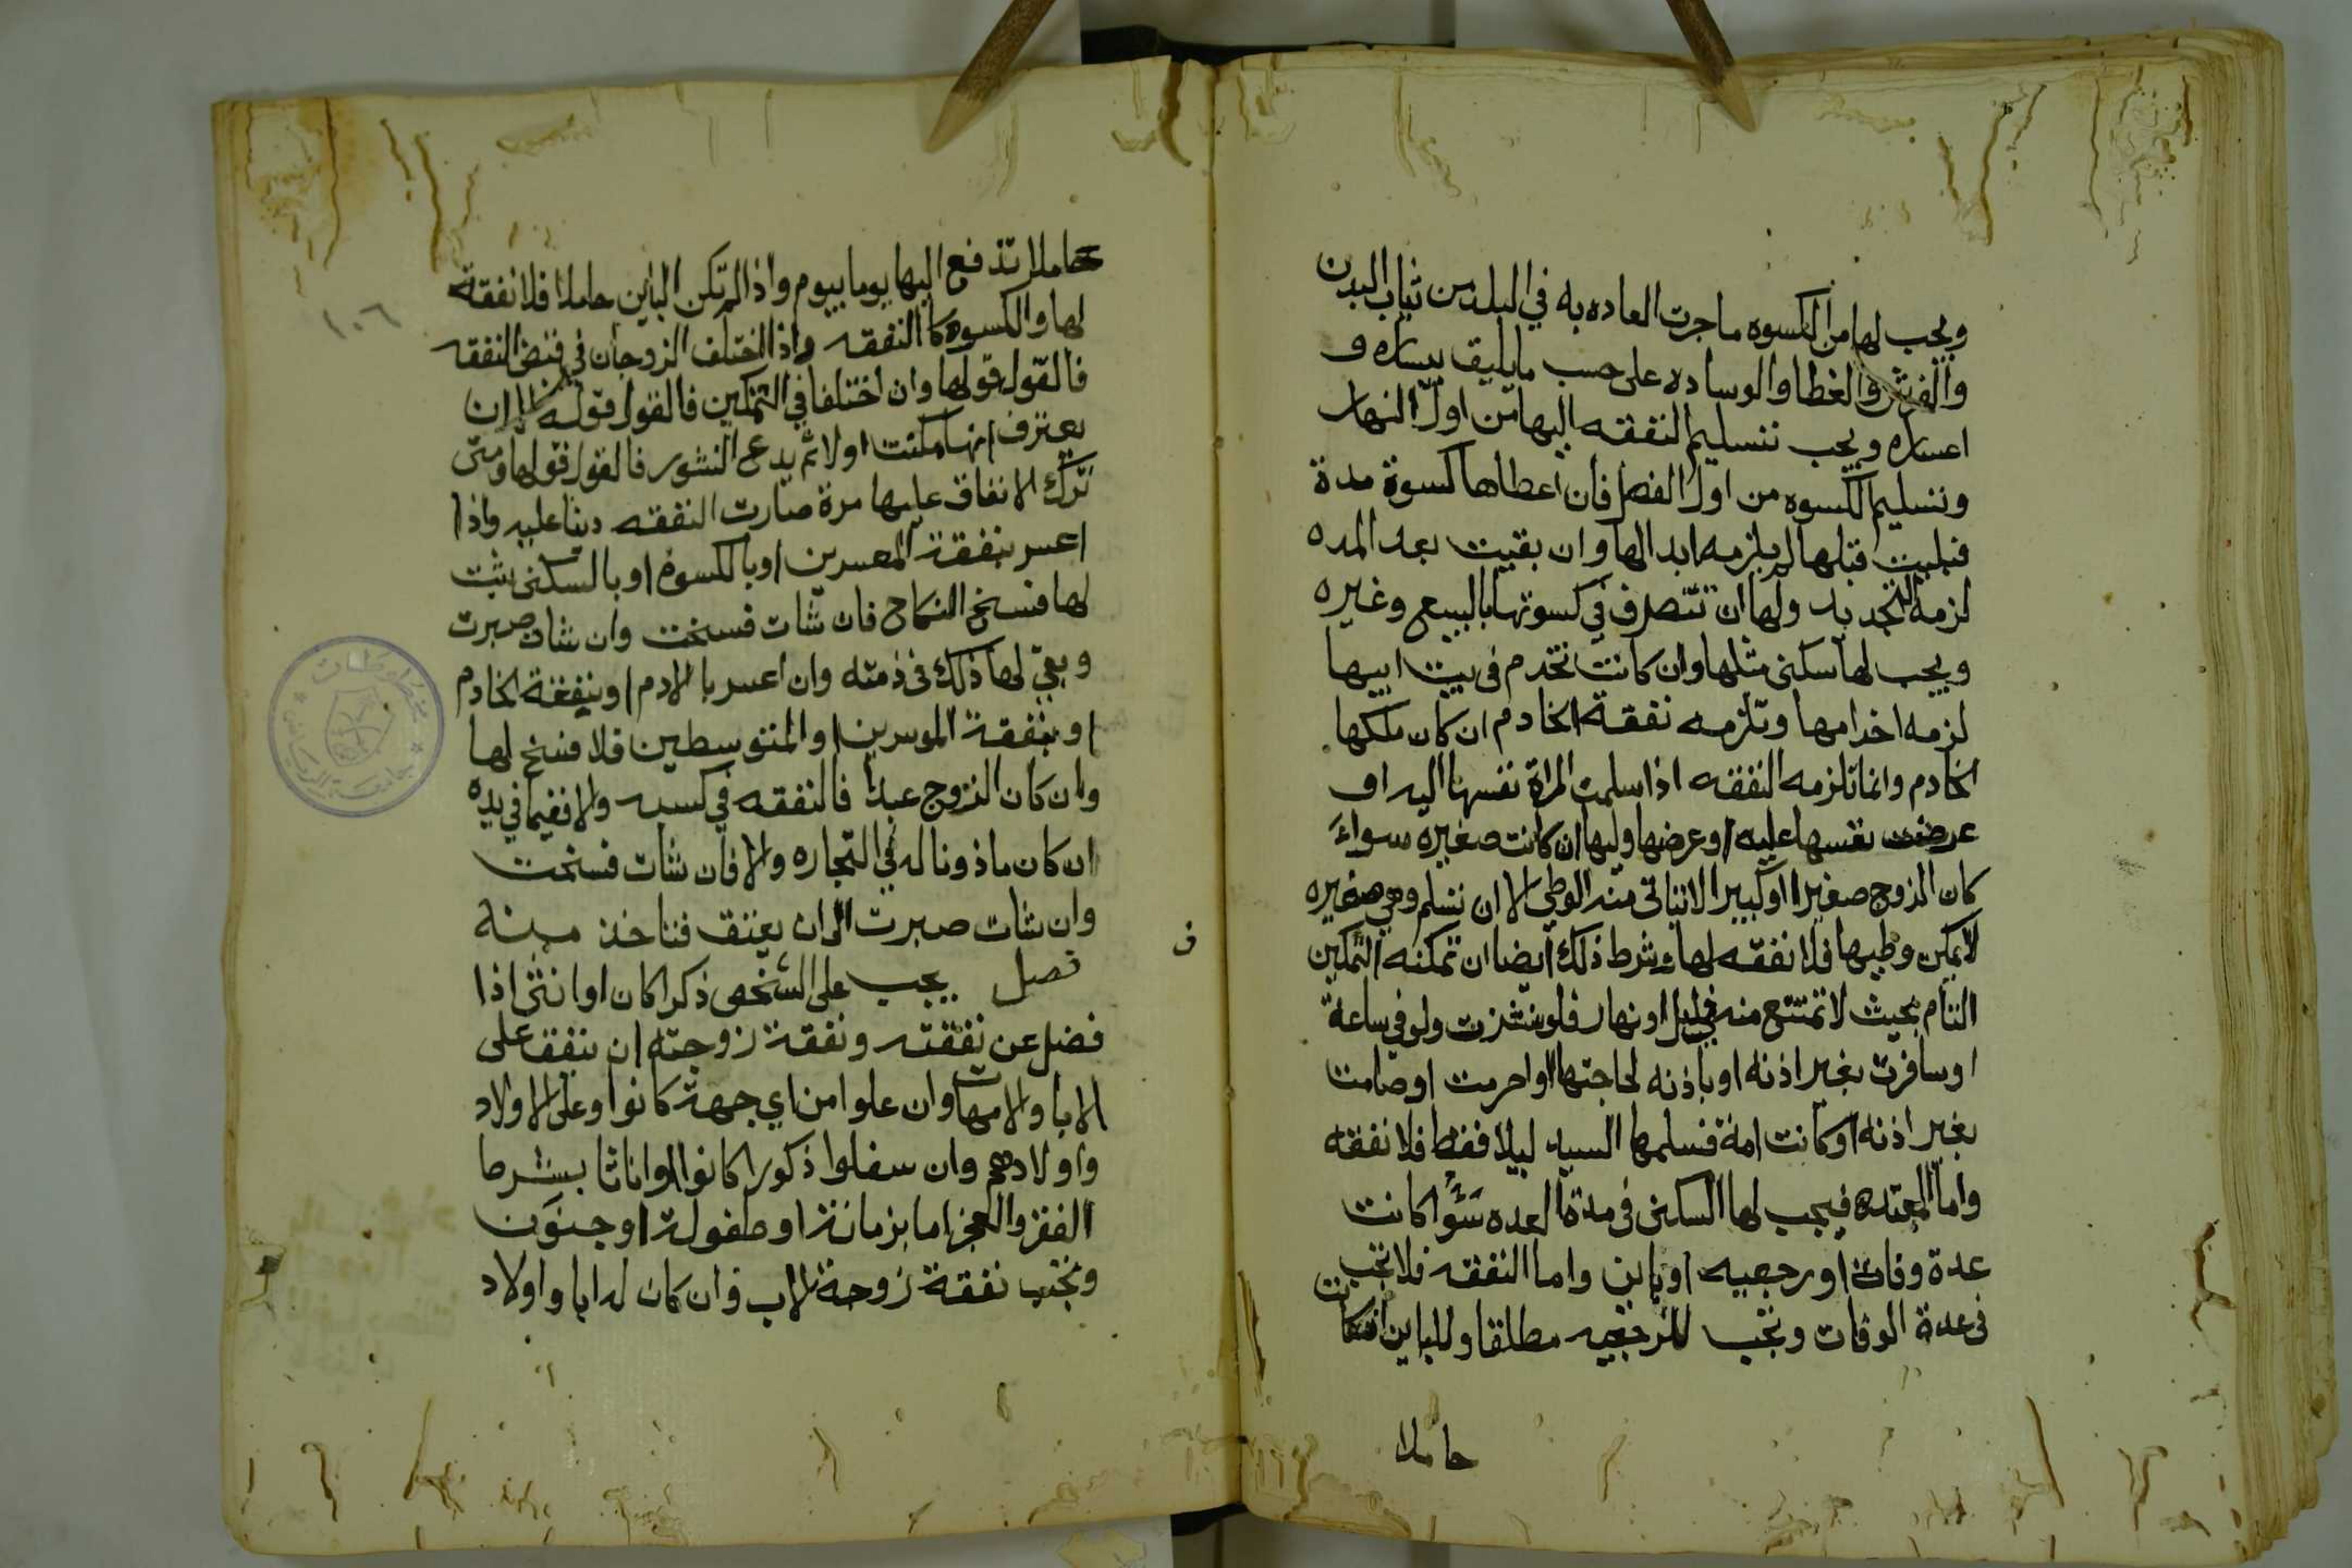 ويجب لها من الكسوه ما جرت العاده به في البلد من ثياب البدن
والفرش والغطا والوساده على حسب ما يليق بيساره و
اعساره ويجب تسليم النفقه اليها من اول النهار
وتسليم الكسوه من اول الفصل فان اعطاها كسوة مدة
فبليت قبلها لم يلزمه ابدالها وان بقيت بعد المده
لزمه التجديد ولها ان تتصرف في كسوتها بالبيع وغيره
ويجب لها سكنى مثلها وان كانت تخدم في بيت ابيها
لزمه اخدامها وتلزمه نفقة الخادم ان كان ملكها
الخادم وانما تلزمه النفقه اذا سلمت المراة نفسها اليه او
عرضت نفسها عليه او عرضها وليها ان كانت صغيره سواء
كان الزوج صغيرا او كبيرا لا يتاتى منه الوطي الا ان تسلم وهي صغيره
لا يمكن وطيها فلا نفقه لها وشرط ذلك ايضا ان تمكنه التمكين
التام بحيث لا تمتنع منه في ليل او نهار فلو نشزت ولو في ساعة
او سافرت بغير اذنه او باذنه لحاجتها او احرمت او صامت
بغير اذنه او كانت امة فسلمها السيد ليلا فقط فلا نفقه
واما المعتده فيجب لها السكنى في مدة العده سَوْاً كانت
عدة وفاة او رجعيه او باين واما النفقه فلا تجب
في عدة الوفات وتجب للرجعيه مطلقا وللباين ان كانت
حاملا
حاملا تدفع اليها يوما بيوم واذا لم تكن الباين حاملا فلا نفقة
١٠٦
لها والكسوه كالنفقه واذا اختلف الزوجان في قبض النفقه
فالقول قولها وان اختلفا في التمكين فالقول قوله الا ان
يعترف انها مكنت اولا ثم يدعي النشور فالقول قولها ومتى
ترك الانفاق عليها مرة صارت النفقه دينا عليه واذا
اعسر بنفقة المعسرين او بالكسوة او بالسكنى يثبت
لها فسخ النكاح فان شات فسخت وان شات صبرت
وبقي لها ذلك في ذمته وان اعسر بالادم او بنفقة الخادم
او بنفقة الموسرين او المتوسطين فلا فسخ لها
وان كان الزوج عبدا فالنفقه في كسبه والا ففيما في يده
ان كان ماذونا له في التجاره والا فان شات فسخت
وان شات صبرت الى ان يعتق فتاخذ منه
ف
فصل يجب على الشخص ذكرا كان او انثى اذا
فضل عن نفقته ونفقة زوجته ان ينفق على
الابا والامهات وان علوا من اي جهة كانوا وعلى الاولاد
واولادهم وان سفلوا ذكورا كانوا او اناثا بشرط
الفقر والعجز اما بزمانة او طفولة او جنون
وتجب نفقة زوجة الاب وان كان له ابا واولاد